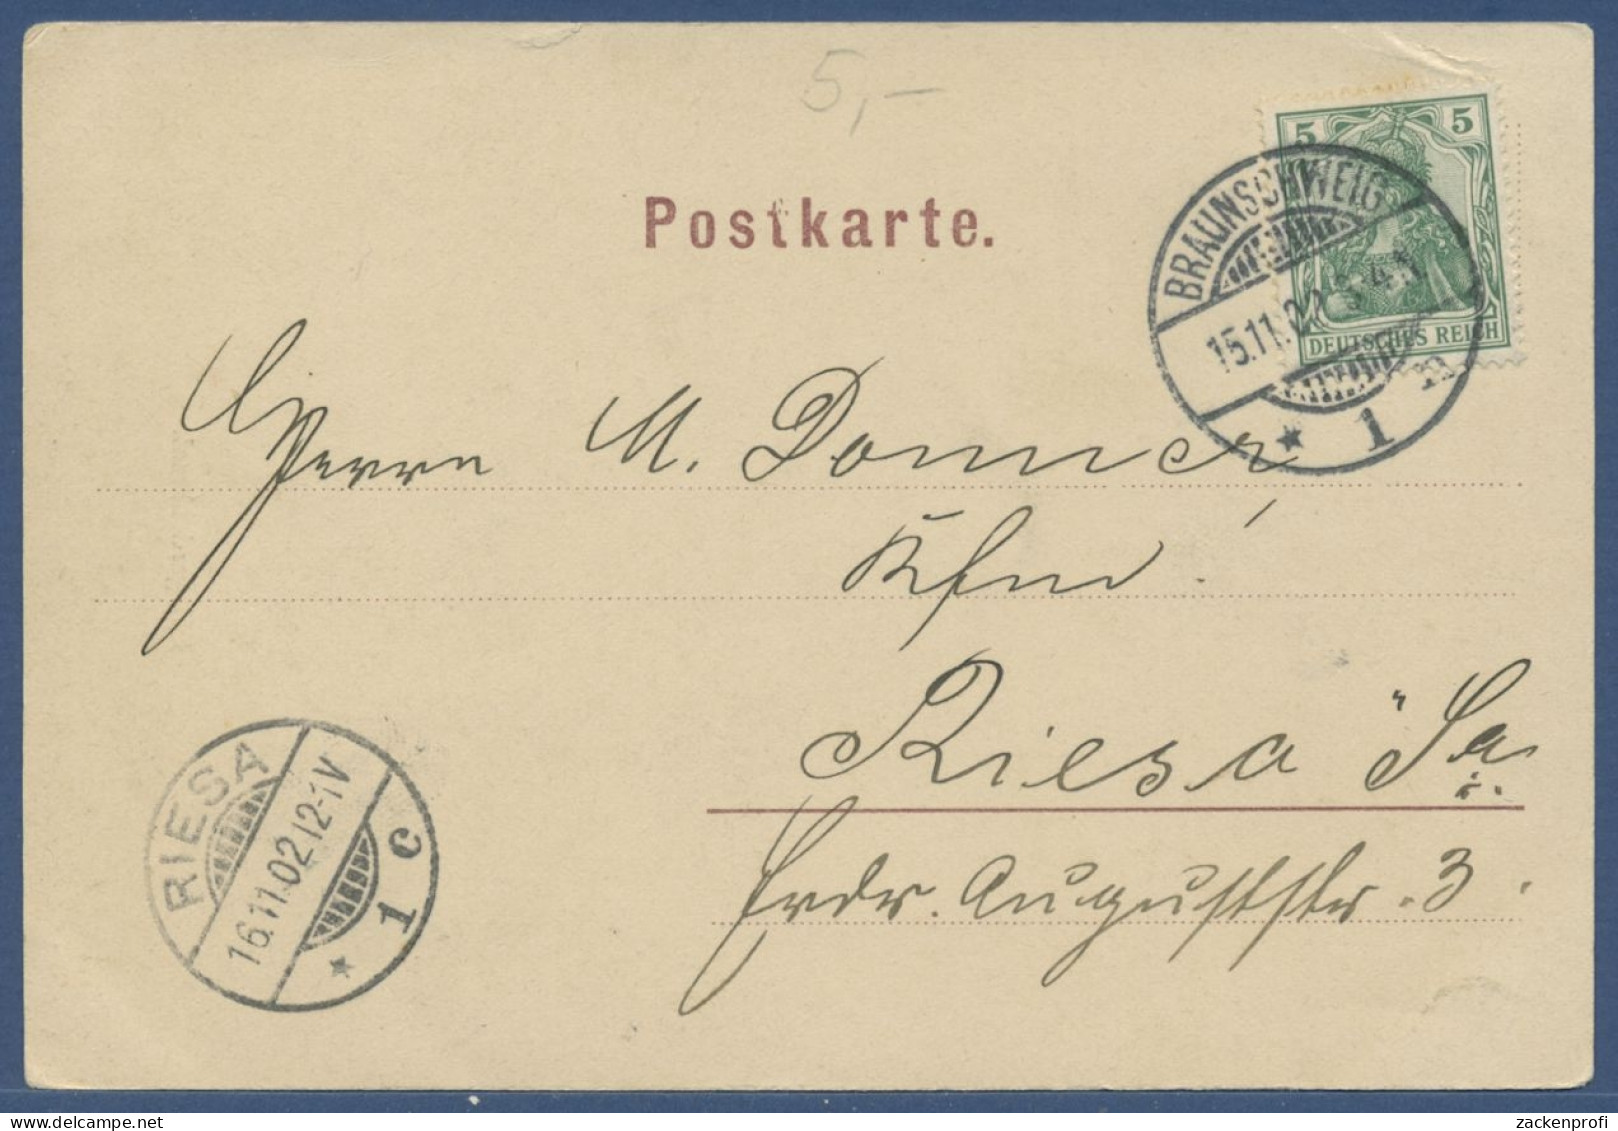 5,-
Postkarte.
5 5
DEUTSCHES REICH
BRAUNSCHWEIG
15.11.02 3-4 N
* 1 m
Herrn M. Donner
Kfm.
Riesa i. Sa
Frdr. Auguststr. 3.
RIESA
16.11.02 12-1V
* 1 c
zackenprofi